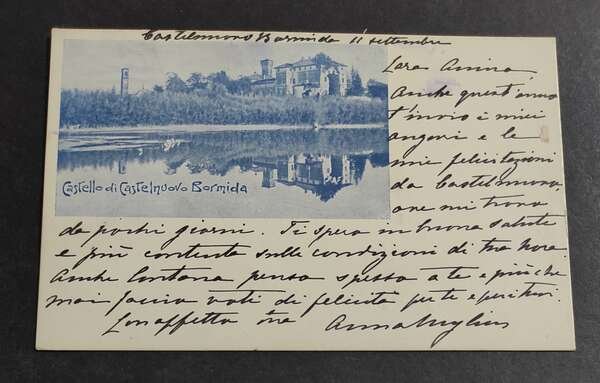 Castelnuovo Bormida 11 settembre
Cara Amica
Anche quest'anno
t'invio i miei
auguri e le
mie felicitazioni
da Castelnuovo
ove mi trovo
Castello di Castelnuovo Bormida
da pochi giorni. Ti spero in buona salute
e più contenta sulle condizioni di tua
Anche lontana penso spesso a te e più che
mai faccio voti di felicità per te e per i tuoi.
Con affetto Anna